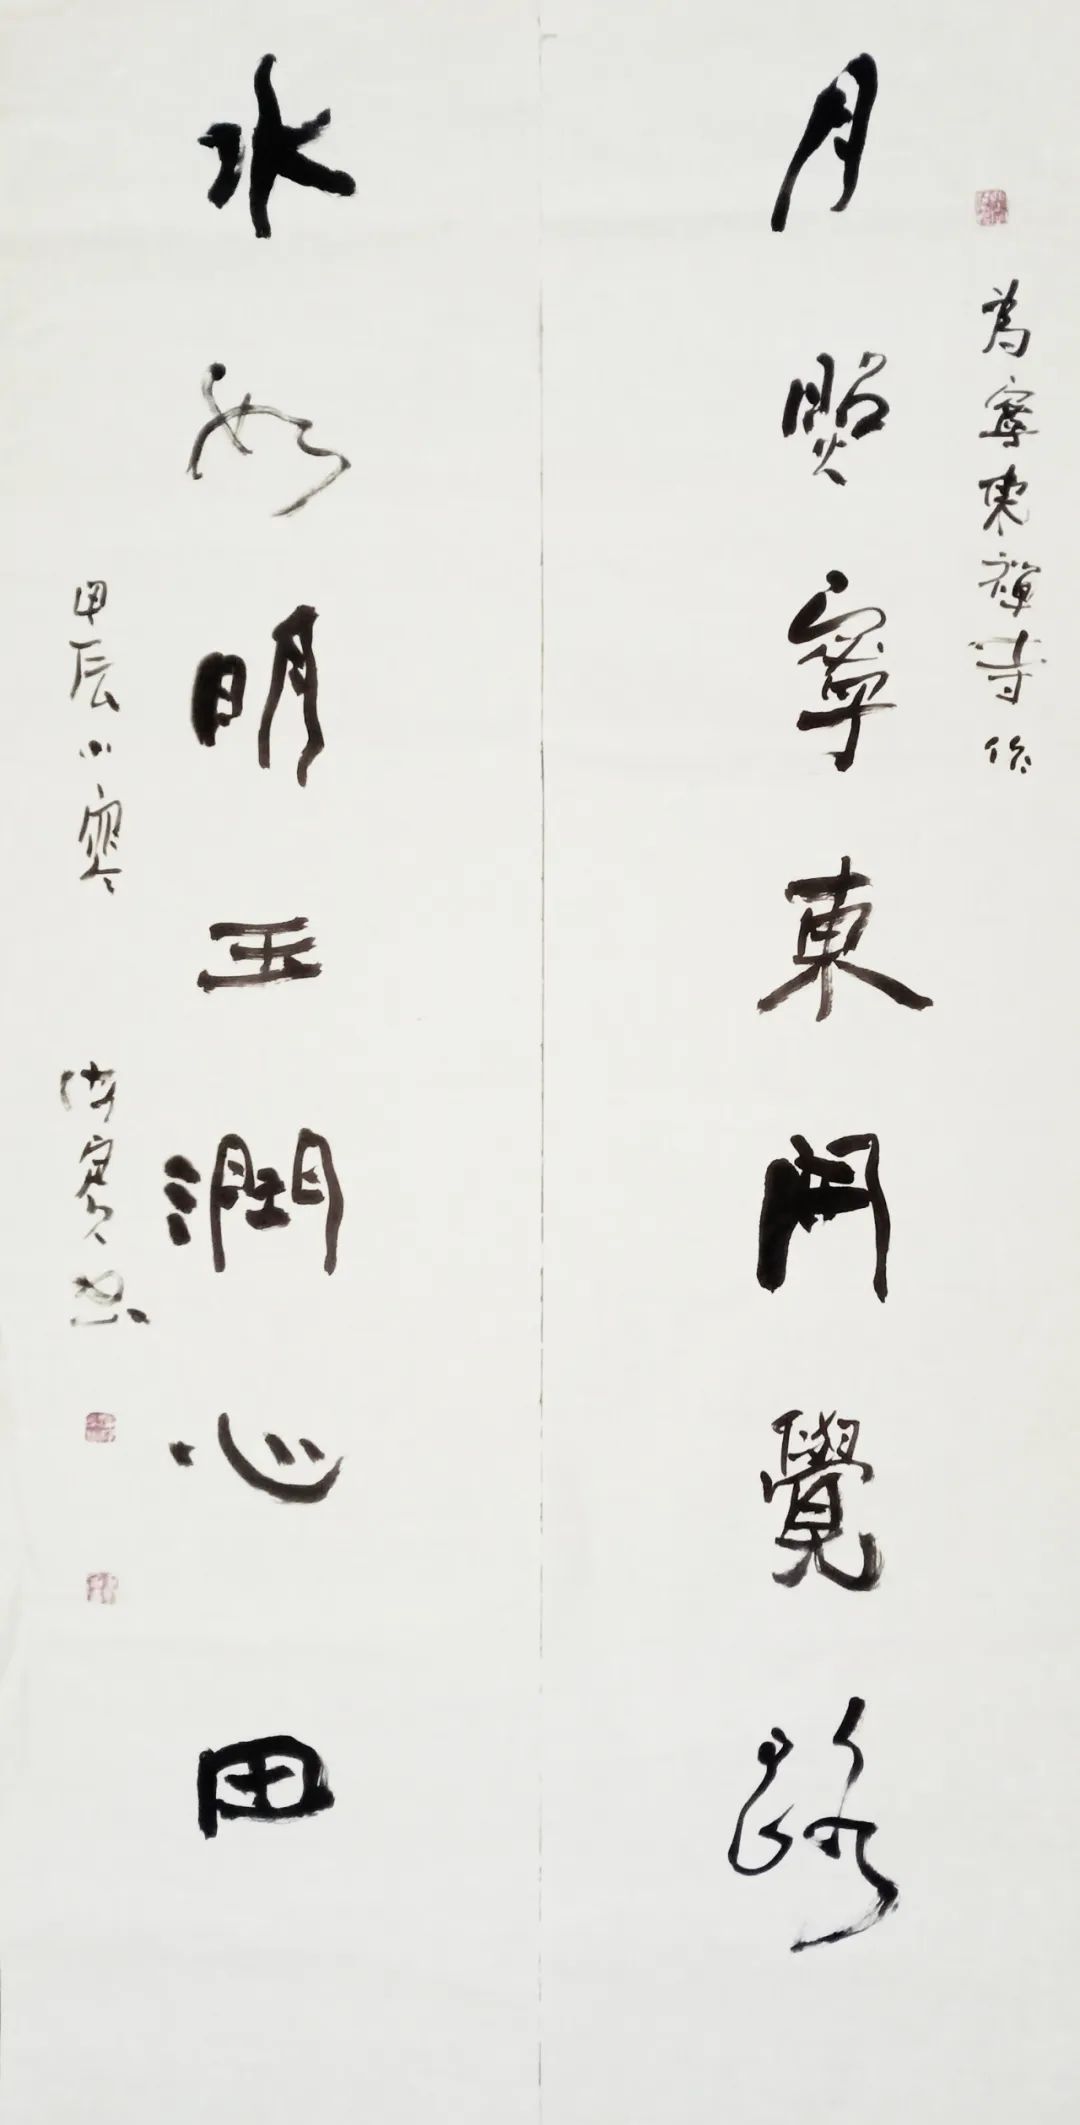 為寧東禪寺作
月照寧東開覺路
水如明玉潤心田
甲辰小寒